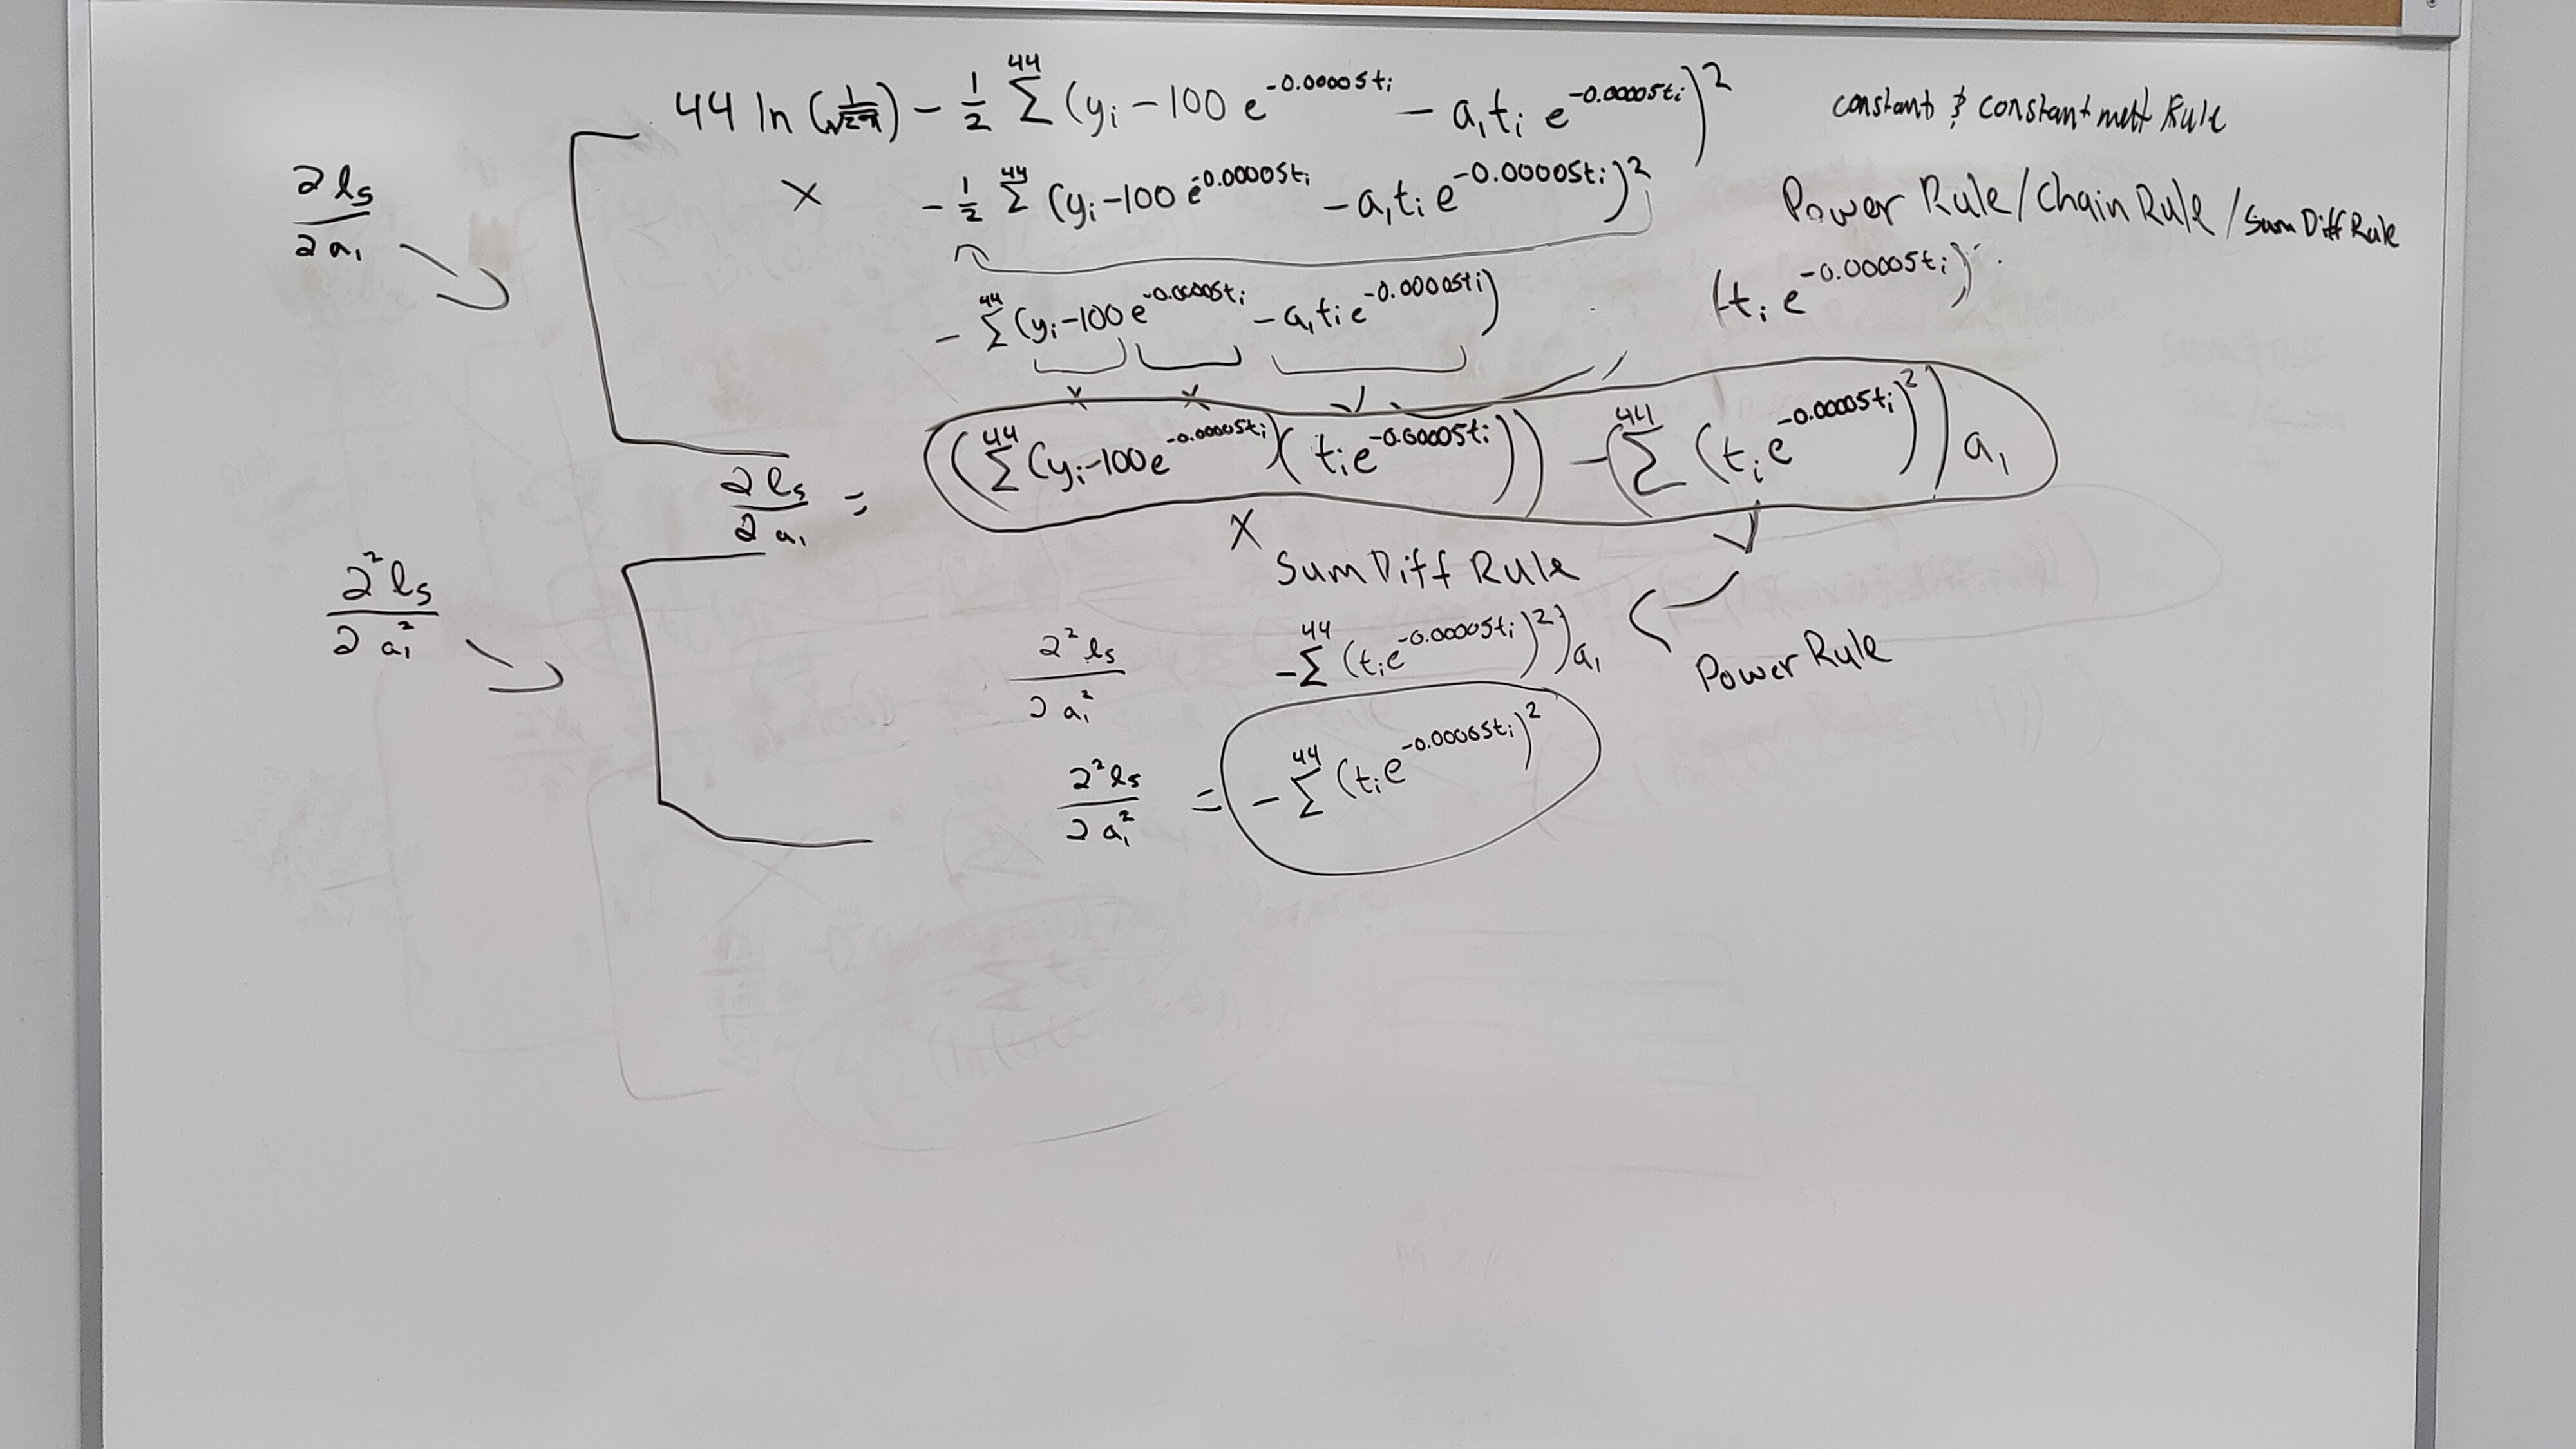 44 ln (1/√2π) − 1/2 Σ^44 (yᵢ − 100 e^(−0.00005tᵢ) − a₁tᵢ e^(−0.00005tᵢ))² constant & constant mult Rule
∂ℓ₅/∂a₁ × − 1/2 Σ^44 (yᵢ − 100 e^(−0.00005tᵢ) − a₁tᵢ e^(−0.00005tᵢ))² Power Rule/Chain Rule/Sum Diff Rule
− Σ^44 (yᵢ − 100 e^(−0.00005tᵢ) − a₁tᵢ e^(−0.00005tᵢ)) (tᵢ e^(−0.00005tᵢ))
x x ✓
∂ℓ₅/∂a₁ = (Σ^44 (yᵢ − 100e^(−0.00005tᵢ))(tᵢe^(−0.00005tᵢ))) − (Σ^44 (tᵢe^(−0.00005tᵢ))²) a₁
X
Sum Diff Rule
∂²ℓ₅/∂a₁²
∂²ℓ₅/∂a₁² − Σ^44 (tᵢe^(−0.00005tᵢ))²) a₁ Power Rule
∂²ℓ₅/∂a₁² = − Σ^44 (tᵢe^(−0.00005tᵢ))²